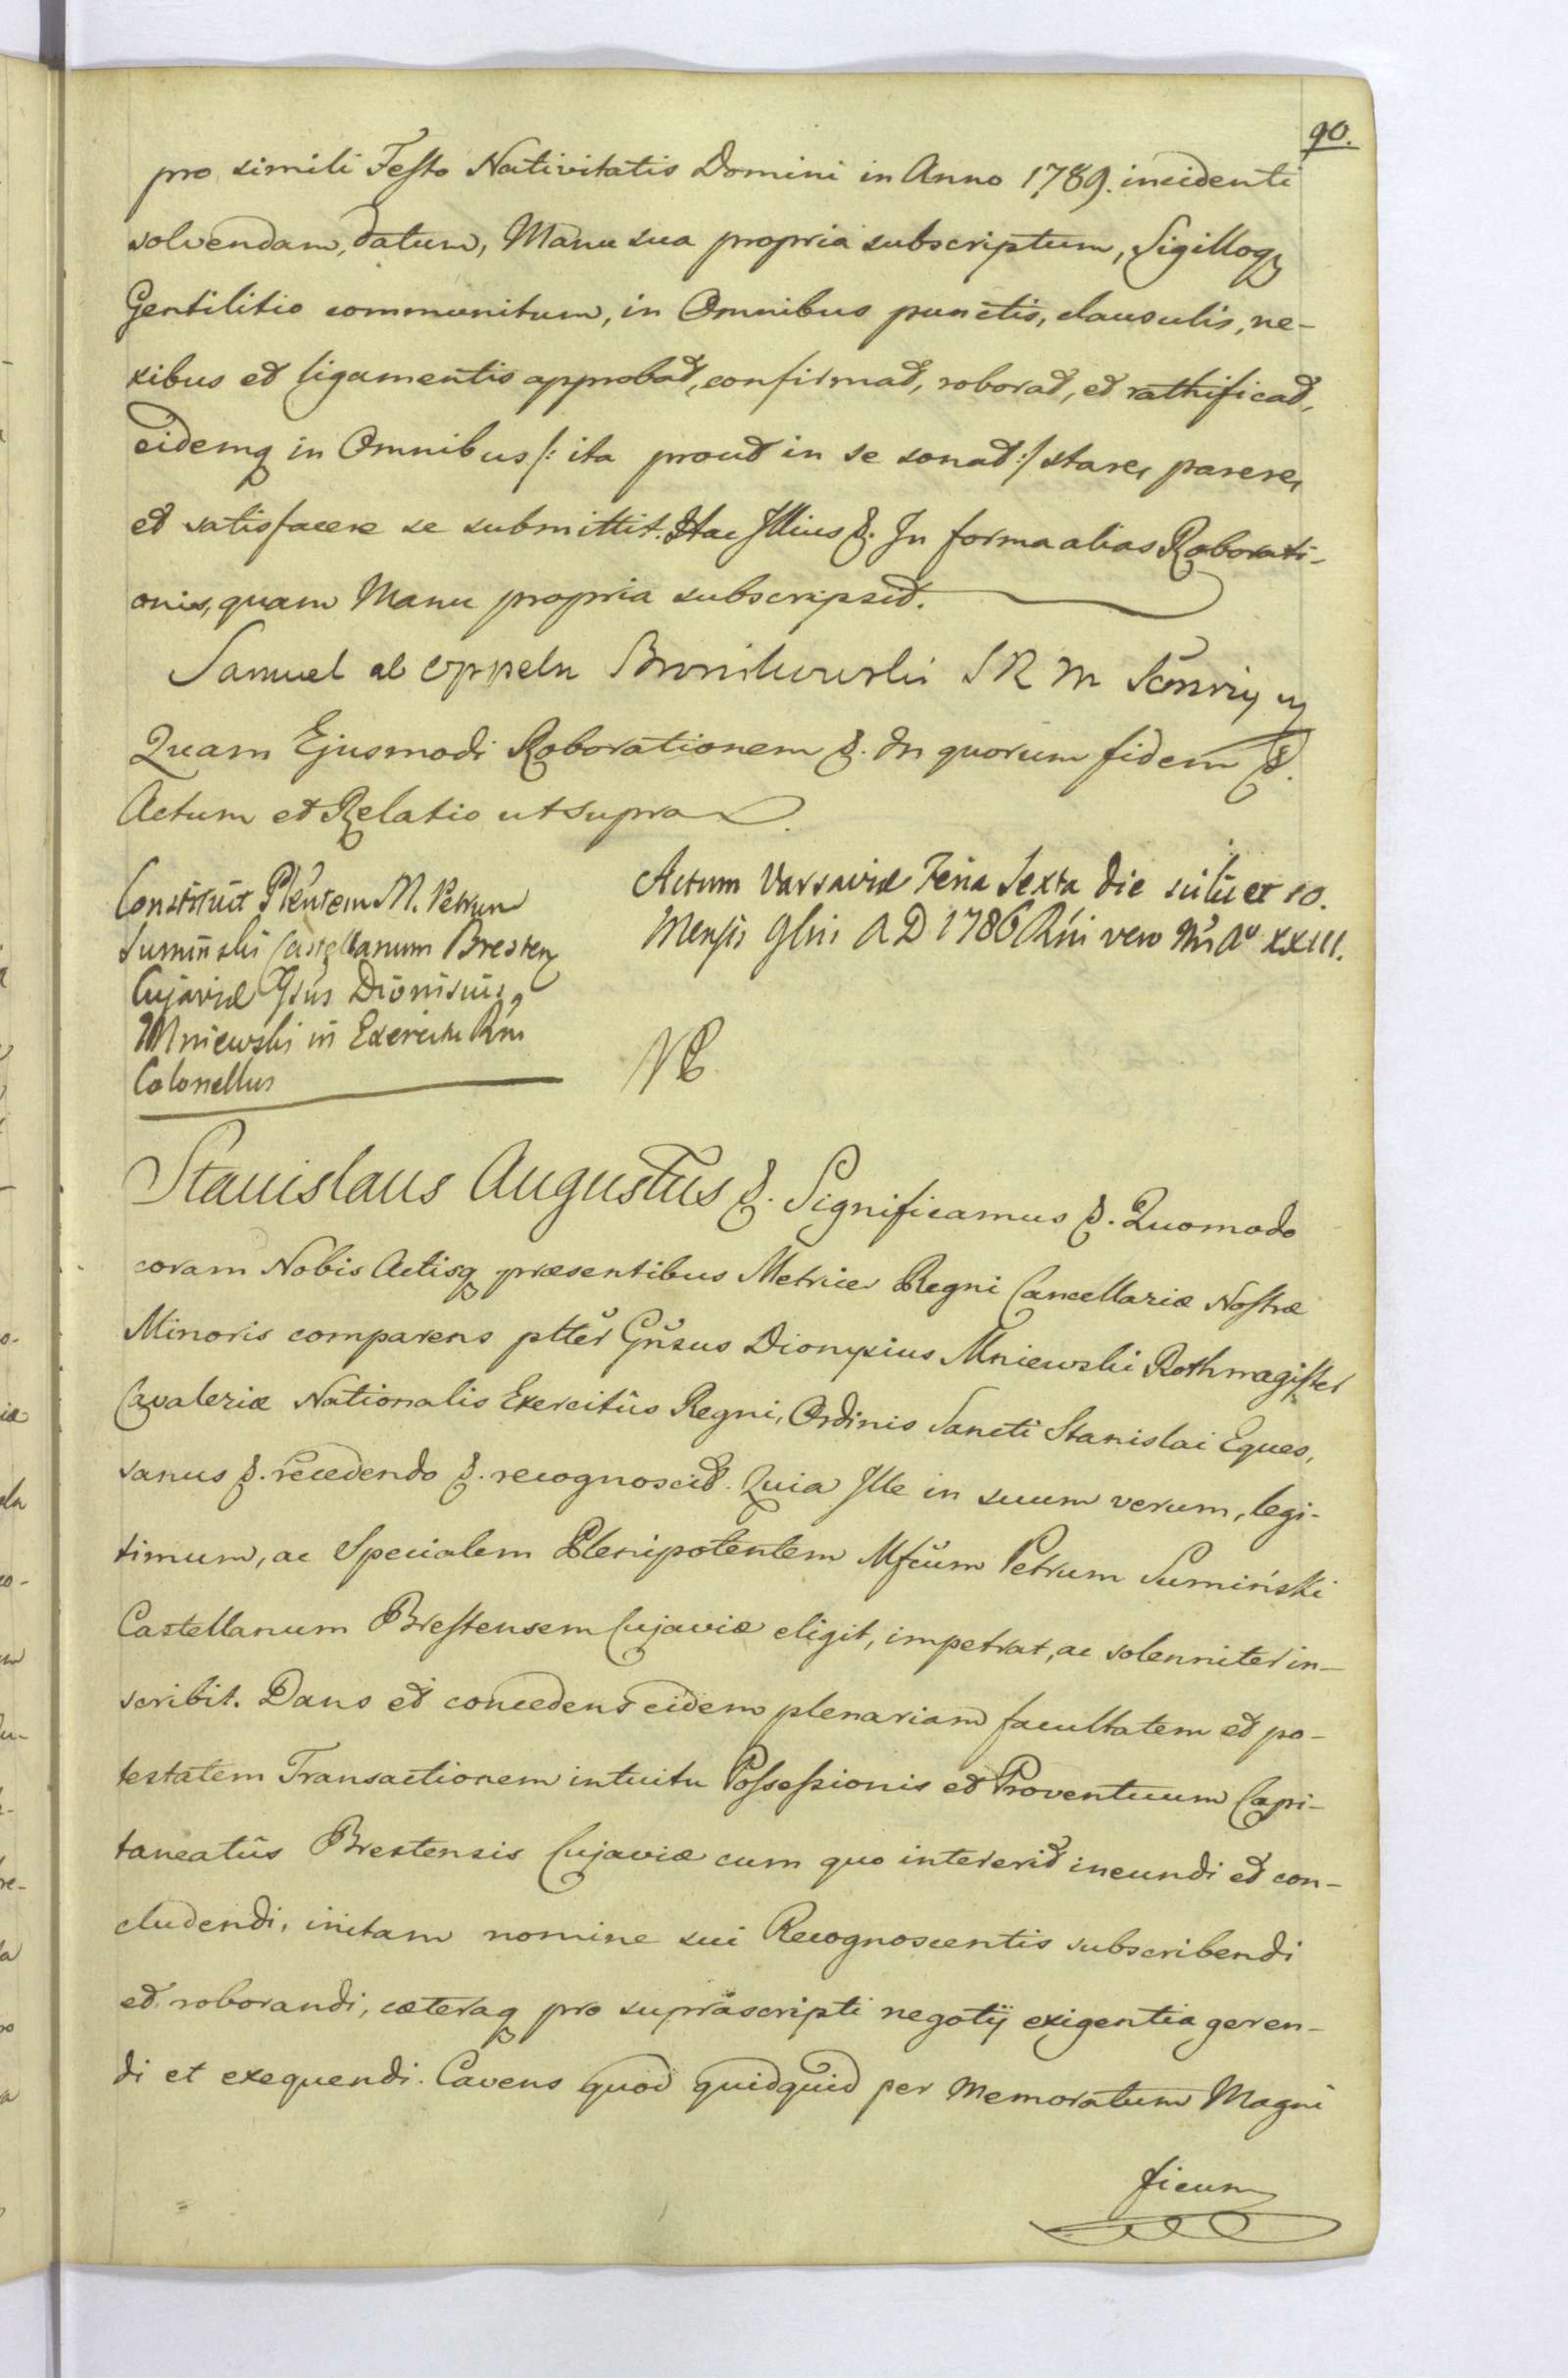 90.
pro simili Festo Nativitatis Domini in Anno 1789. incidenti
solvendam, datum, Manu sua propria subscriptum, Sigilloq
Gentilitio communitum, in Omnibus punctis, clausulis, ne-
xibus et ligamentis approbat, confirmat, roborat, et rathificat,
eidemq in Omnibus /: ita prout in se sonat :/ stare, parere,
et satisfacere se submittit. Hac Illius &. In forma alias Roborati-
onis, quam Manu propria subscripsit.
Samuel ab Oppeln Bronikowski S R M
Quam Ejusmodi Roborationem &. In quorum fidem &.
Actum et Relatio ut supra.
Constituit Plentem M. Petrum
Sumiński Castellanum Bresten
Cujaviæ Gsus Dionisius
Mniewski in Exercitu Rni
Colonellus
Actum Varsaviæ Feria Sexta die scilicet 10.
Mensis 9bris A D 1786 Rni vero Nri A° XXIII.
Stanislaus Augustus &. Significamus &. Quomodo
coram Nobis Actisq præsentibus Metrices Regni Cancellariæ Nostræ
Minoris comparens pltter Gnsus Dionysius Mniewski Rothmagister
Cavaleriæ Nationalis Exercitûs Regni, Ordinis Sancti Stanislai Eques,
sanus &. recedendo &. recognoscit. Quia Ille in suum verum, legi-
timum, ac Specialem Plenipotentem Mfcum Petrum Sumiński
Castellanum Brestensem Cujaviæ eligit, impetrat, ac solenniter in-
scribit. Dans et concedens eidem plenariam facultatem et po-
testatem Transactionem intuitu Possessionis et Proventuum Capi-
taneatûs Brestensis Cujaviæ cum quo intererit ineundi et con-
cludendi, initam nomine sui Recognoscentis subscribendi
et roborandi, cæteraq pro suprascripti negotij exigentia geren-
di et exequendi. Cavens quod quidquid per Memoratum Magni
ficum